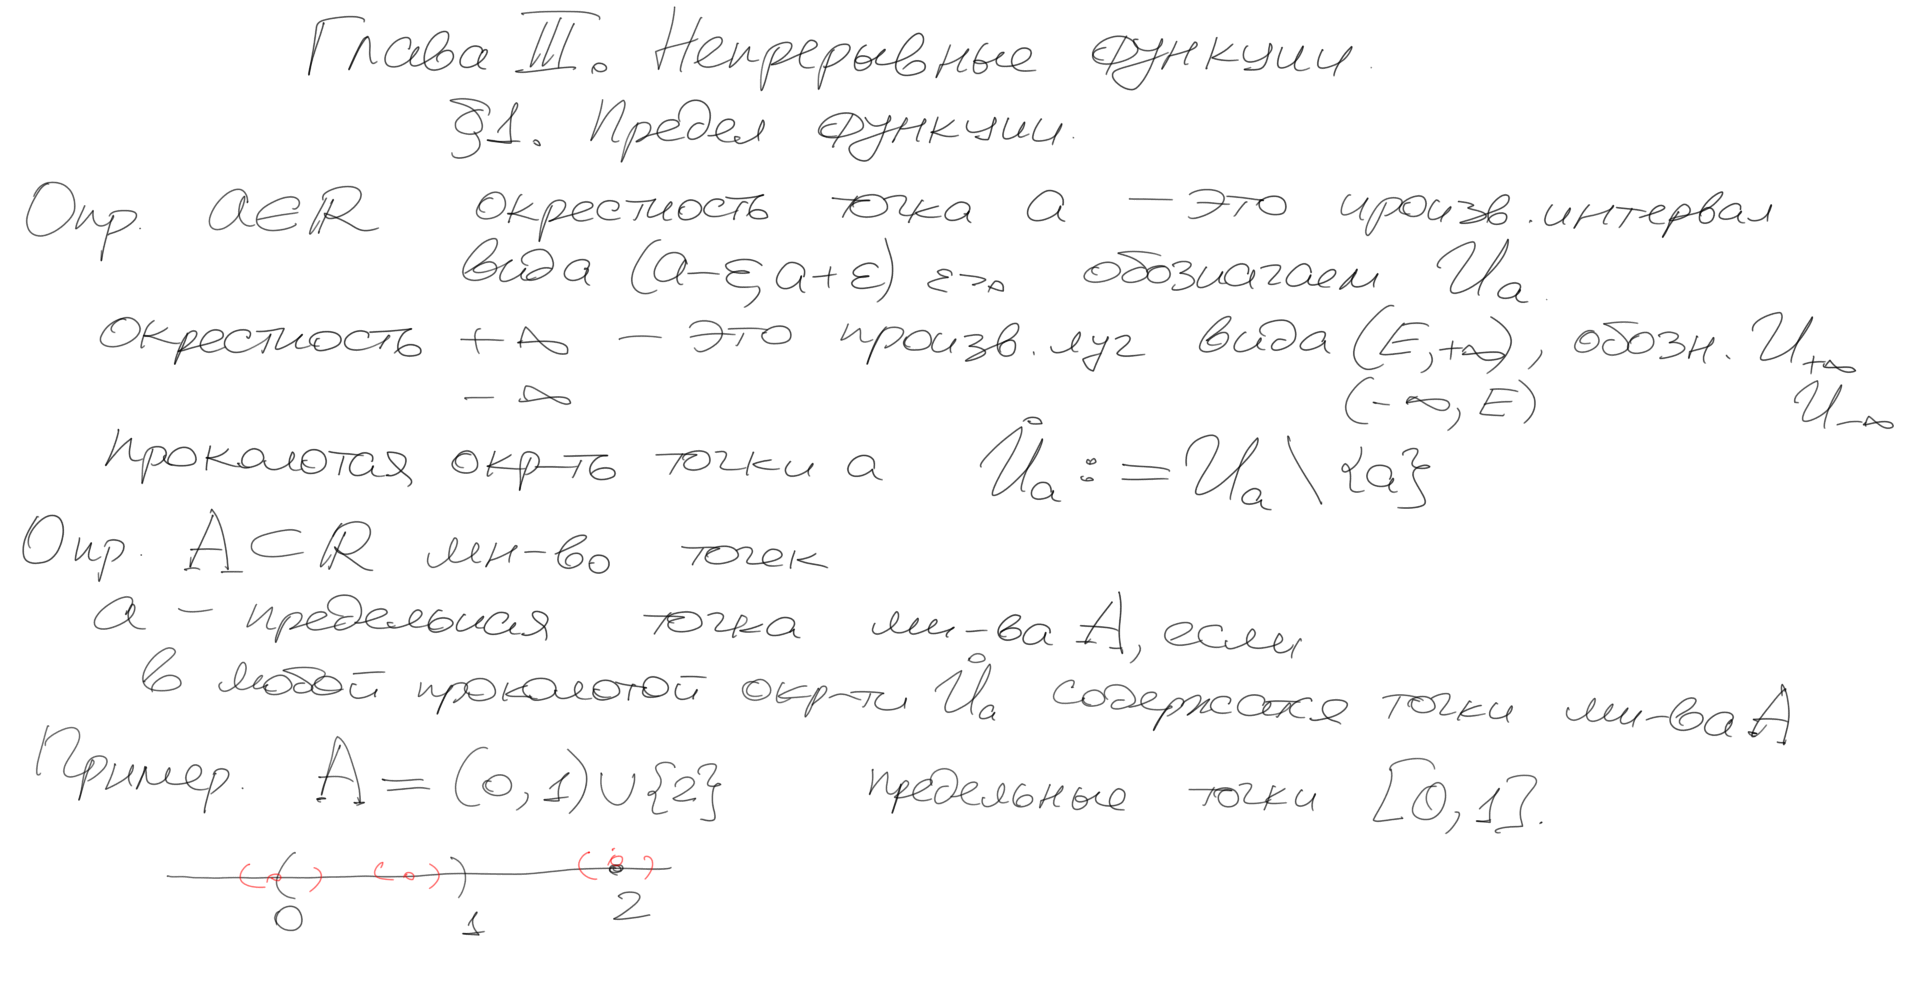 Глава III. Непрерывные функции.
§1. Предел функции.
Опр. a∈ℝ окрестность точка a — это произв. интервал
вида (a−ε, a+ε) ε>0 обозначаем Uₐ.
окрестность +∞ — это произв. луч вида (E,+∞), обозн. U₊∞
−∞ (−∞, E) U₋∞
проколотая окр-ть точки a Ůₐ := Uₐ \ {a}
Опр. A⊂ℝ мн-во точек
a − предельная точка мн-ва A, если
в любой проколотой окр-ти Ůₐ содержатся точки мн-ва A
Пример. A = (0,1)∪{2} предельные точки [0,1].
0 1 2